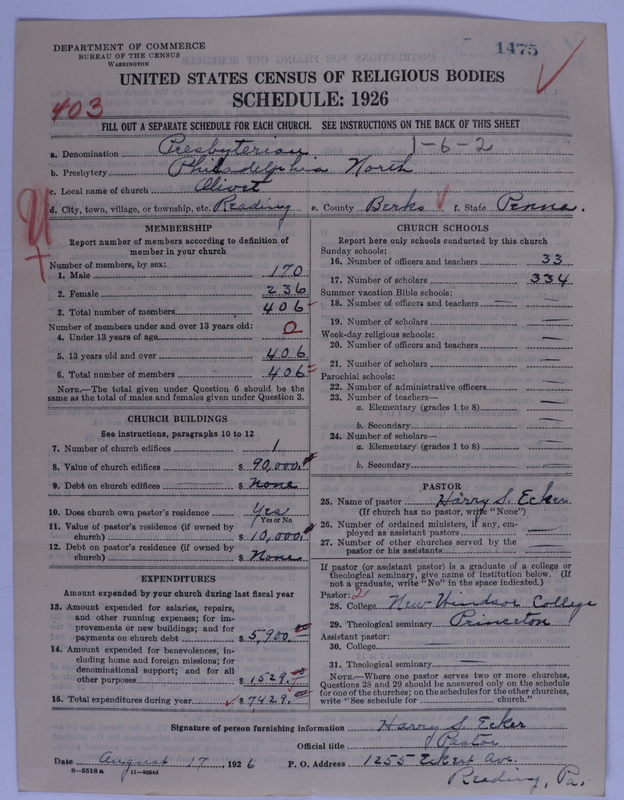 1475
DEPARTMENT OF COMMERCE
BUREAU OF THE CENSUS
WASHINGTON
UNITED STATES CENSUS OF RELIGIOUS BODIES
SCHEDULE: 1926
403
FILL OUT A SEPARATE SCHEDULE FOR EACH CHURCH. SEE INSTRUCTIONS ON THE BACK OF THIS SHEET
1-6-2
a. Denomination Presbyterian
b. Presbytery Philadelphia North
c. Local name of church Olivet
d. City, town, village, or township, etc. Reading e. County Berks f. State Penna.
MEMBERSHIP
Report number of members according to definition of
member in your church
Number of members, by sex:
1. Male 170
2. Female 236
3. Total number of members 406
Number of members under and over 13 years old:
4. Under 13 years of age 0
5. 13 years old and over 406
6. Total number of members 406
NOTE.—The total given under Question 6 should be the
same as the total of males and females given under Question 3.
CHURCH BUILDINGS
See instructions, paragraphs 10 to 12
7. Number of church edifices 1
8. Value of church edifices $ 90,000.
9. Debt on church edifices $ None
10. Does church own pastor's residence Yes
Yes or No
11. Value of pastor's residence (if owned by
church) $ 10,000.
12. Debt on pastor's residence (if owned by
church) $ None
EXPENDITURES
Amount expended by your church during last fiscal year
13. Amount expended for salaries, repairs,
and other running expenses; for im-
provements or new buildings; and for
payments on church debt $ 5,900.00
14. Amount expended for benevolences, in-
cluding home and foreign missions; for
denominational support; and for all
other purposes $ 1529.00
15. Total expenditures during year $ 7429.00
CHURCH SCHOOLS
Report here only schools conducted by this church
Sunday schools:
16. Number of officers and teachers 33
17. Number of scholars 334
Summer vacation Bible schools:
18. Number of officers and teachers
19. Number of scholars
Week-day religious schools:
20. Number of officers and teachers
21. Number of scholars
Parochial schools:
22. Number of administrative officers
23. Number of teachers—
a. Elementary (grades 1 to 8)
b. Secondary
24. Number of scholars—
a. Elementary (grades 1 to 8)
b. Secondary
PASTOR
25. Name of pastor Harry S. Ecker
(If church has no pastor, write "None")
26. Number of ordained ministers, if any, em-
ployed as assistant pastors
27. Number of other churches served by the
pastor or his assistants
If pastor (or assistant pastor) is a graduate of a college or
theological seminary, give name of institution below. (If
not a graduate, write "No" in the space indicated.)
Pastor: 2
28. College New Windsor College
29. Theological seminary Princeton
Assistant pastor:
30. College
31. Theological seminary
NOTE.—Where one pastor serves two or more churches,
Questions 28 and 29 should be answered only on the schedule
for one of the churches; on the schedules for the other churches,
write "See schedule for church."
Signature of person furnishing information Harry S. Ecker
Official title Pastor
Date August 17, 1926 P. O. Address 1255 Eckert Ave.
8—5518 a Reading, Pa.